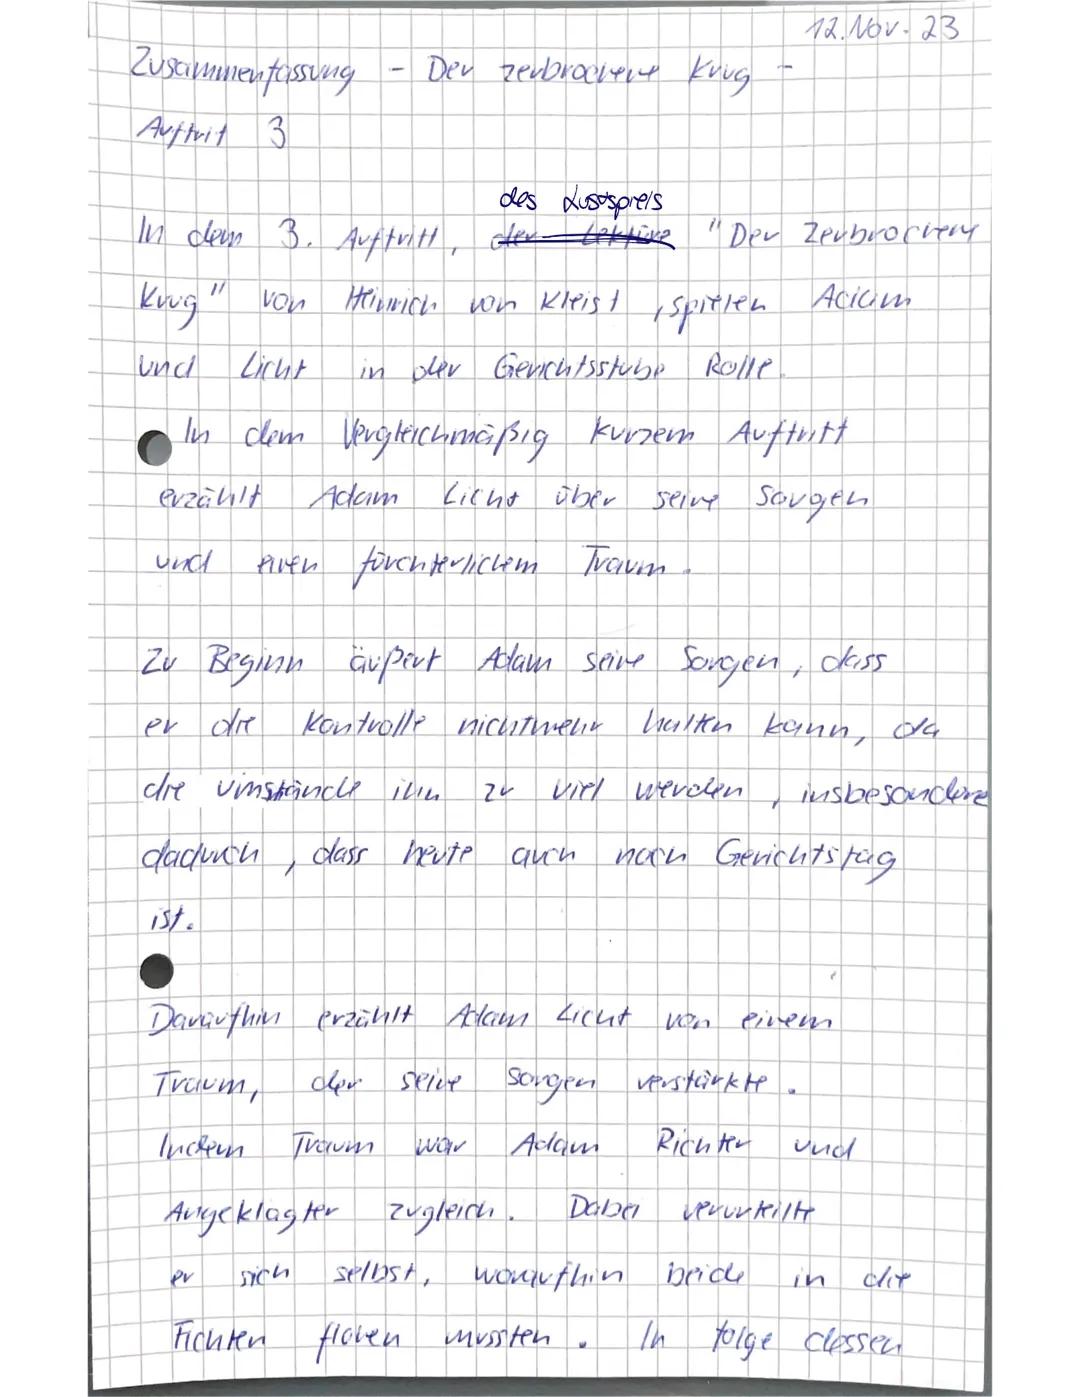 12. Nov. 23
Zusammenfassung - Der zerbrochene Krug -
Auftrit 3
des Lustspiels
In dem 3. Auftritt, der Lektüre "Der Zerbrochene
Krug" von Heinrich von Kleist, spielen Adam
und Licht in der Gerichtsstube Rolle.
In dem Vergleichmäßig kurzem Auftritt
erzählt Adam Licht über seine Sorgen
und einen fürchterlichem Traum.
Zu Beginn äußert Adam seine Sorgen, dass
er die Kontrolle nichtmehr halten kann, da
die umstände ihn zu viel werden, insbesondere
dadurch, dass heute auch noch Gerichtstag
ist.
Daraufhin erzählt Adam Licht von einem
Traum, der seine Sorgen verstärkte.
Indem Traum war Adam Richter und
Angeklagter zugleich. Dabei verurteilte
er sich selbst, woraufhin beide in die
Fichten flohen mussten. In folge dessen